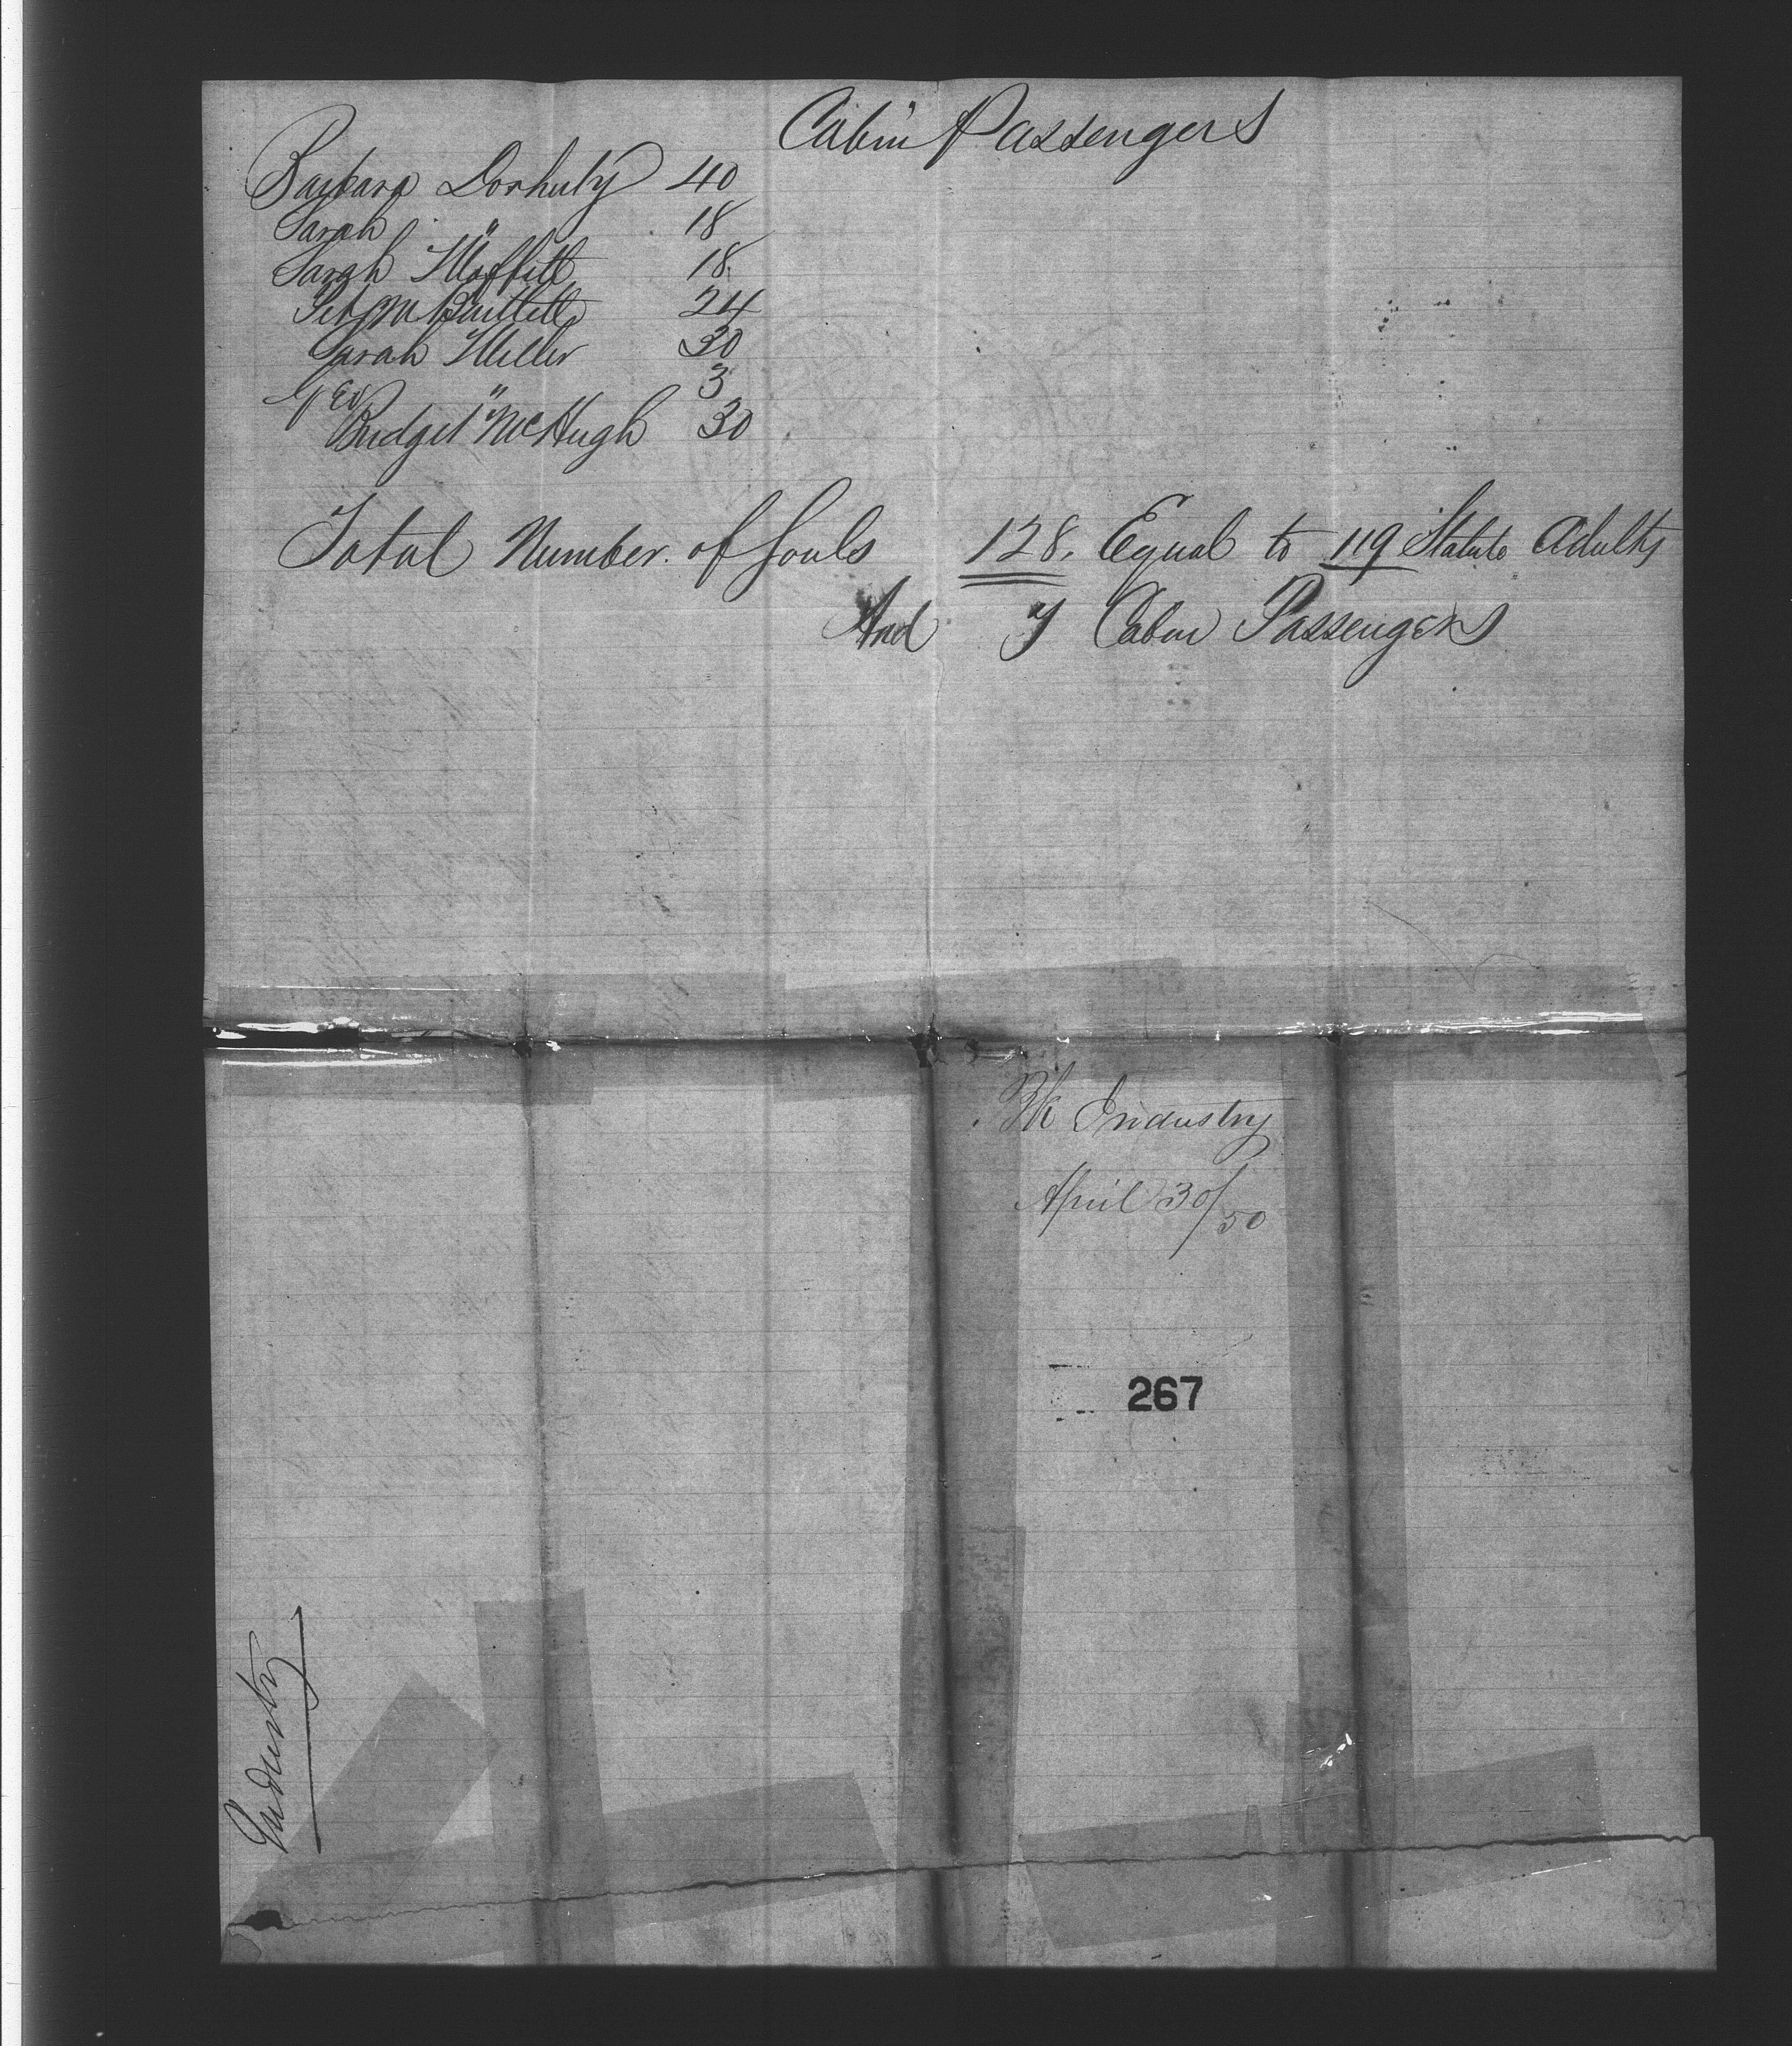 Cabin Passengers
Barbara Dorhuty 40
Sarah " 18
Sarah Moffett 18
M Bartlett 24
Sarah Miller 30
Geo " 3
Bridget McHugh 30
Total Number of Souls 128. Equal to 119 Statute Adults
And 7 Cabin Passengers
Bk Industry
April 30/50
267
Industry